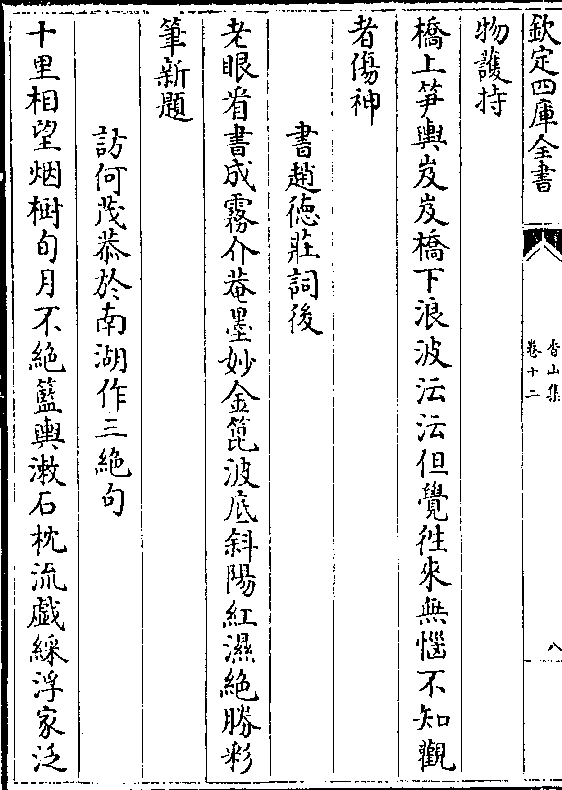 欽定四庫全書
香山集
卷十二
八
物護持
橋上笋輿岌岌橋下浪波沄沄但覺徃來無惱不知觀
者傷神
書趙德莊詞後
老眼㸔書成霧介菴墨妙金篦波底斜陽紅濕絶勝彩
筆新題
訪何茂恭於南湖作三絶句
十里相望烟樹旬月不絶籃輿潄石枕流戯綵浮家泛